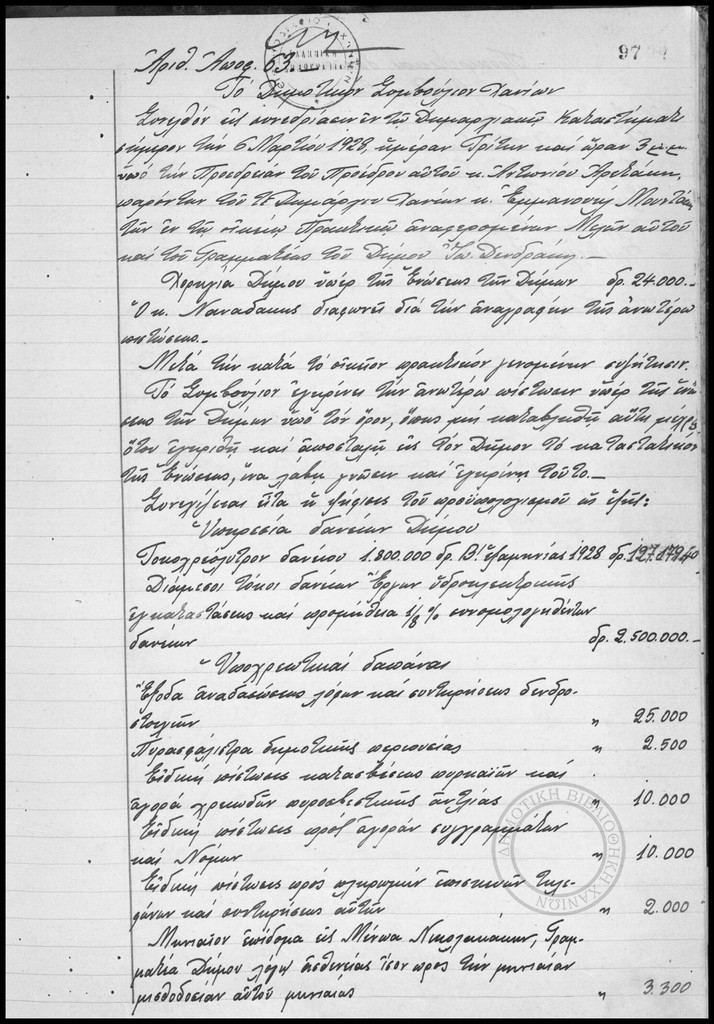 97
Ἀριθ. Ἀποφ. 63
Τό Δημοτικόν Συμβούλιον Χανίων
Συνελθόν εἰς συνεδρίασιν ἐν τῷ Δημαρχιακῷ Καταστήματι
σήμερον τήν 6 Μαρτίου 1928, ἡμέραν Τρίτην καί ὥραν 3 μ.μ.
ὑπό τήν Προεδρείαν τοῦ Προέδρου αὐτοῦ κ. Ἀντωνίου
παρόντος τοῦ κ. Δημάρχου Χανίων κ. Ἐμμανουήλ
τῶν ἐν τῷ οἰκείῳ Πρακτικῷ ἀναφερομένων Μελῶν αὐτοῦ
καί τοῦ Γραμματέως τοῦ Δήμου Ἰω. Δενδράκη.—
Χορηγία Δήμου ὑπέρ τῆς Ἑνώσεως τῶν Δήμων δρ. 24.000.—
Ὁ κ. Ναναδάκης διαφωνεῖ διά τήν ἀναγραφήν τῆς ἀνωτέρω
πιστώσεως.—
Μετά τήν κατά τό οἰκεῖον πρακτικόν γενομένην συζήτησιν.
Τό Συμβούλιον ἐγκρίνει τήν ἀνωτέρω πίστωσιν ὑπέρ τῆς ἑνώ-
σεως τῶν Δήμων ὑπό τόν ὅρον, ὅπως μή καταβληθῇ αὕτη μέχρις
ὅτου ἐγκριθῇ καί ἀποσταλῇ εἰς τόν Δῆμον τό καταστατικόν
τῆς Ἑνώσεως, ἵνα λάβῃ γνῶσιν καί ἐγκρίνῃ τοῦτο.—
Συνεχίζεται εἶτα ἡ ψήφισις τοῦ προϋπολογισμοῦ ὡς ἑξῆς:
Ὑπηρεσία δανείων Δήμου
Τοκοχρεώλυτρον δανείου 1.800.000 δρ. Β! ἑξαμηνίας 1928 δρ. 127.179.40
Διάμεσοι τόκοι δανείων Ἔργων ὑδροηλεκτρικῆς
ἐγκαταστάσεως καί προμήθεια 1/8 % συνομολογηθέντων
δανείων δρ. 2.500.000.—
Ὑποχρεωτικαί δαπάναι
Ἔξοδα ἀναδασώσεως λόφων καί συντηρήσεως δενδρο-
στοιχιῶν " 25.000
Πυρασφάλιστρα δημοτικῆς περιουσίας " 2.500
Εἰδική πίστωσις κατασβέσεως πυρκαϊῶν καί
ἀγορά χρειωδῶν πυροσβεστικῆς ἀντλίας " 10.000
Εἰδική πίστωσις πρός ἀγοράν συγγραμμάτων
καί Νόμων " 10.000
Εἰδική πίστωσις πρός πληρωμήν ἐπισκευῶν τηλε-
φώνων καί συντηρήσεως αὐτῶν " 2.000
Μηνιαῖον ἐπίδομα εἰς Μίνωα Νικολακάκην, Γραμ-
ματέα Δήμου λόγῳ ἀσθενείας ἴσον πρός τήν μηνιαίαν
μισθοδοσίαν αὐτοῦ μηνιαίως " 3.300
ΔΗΜΟΤΙΚΗ ΒΙΒΛΙΟΘΗΚΗ ΧΑΝΙΩΝ